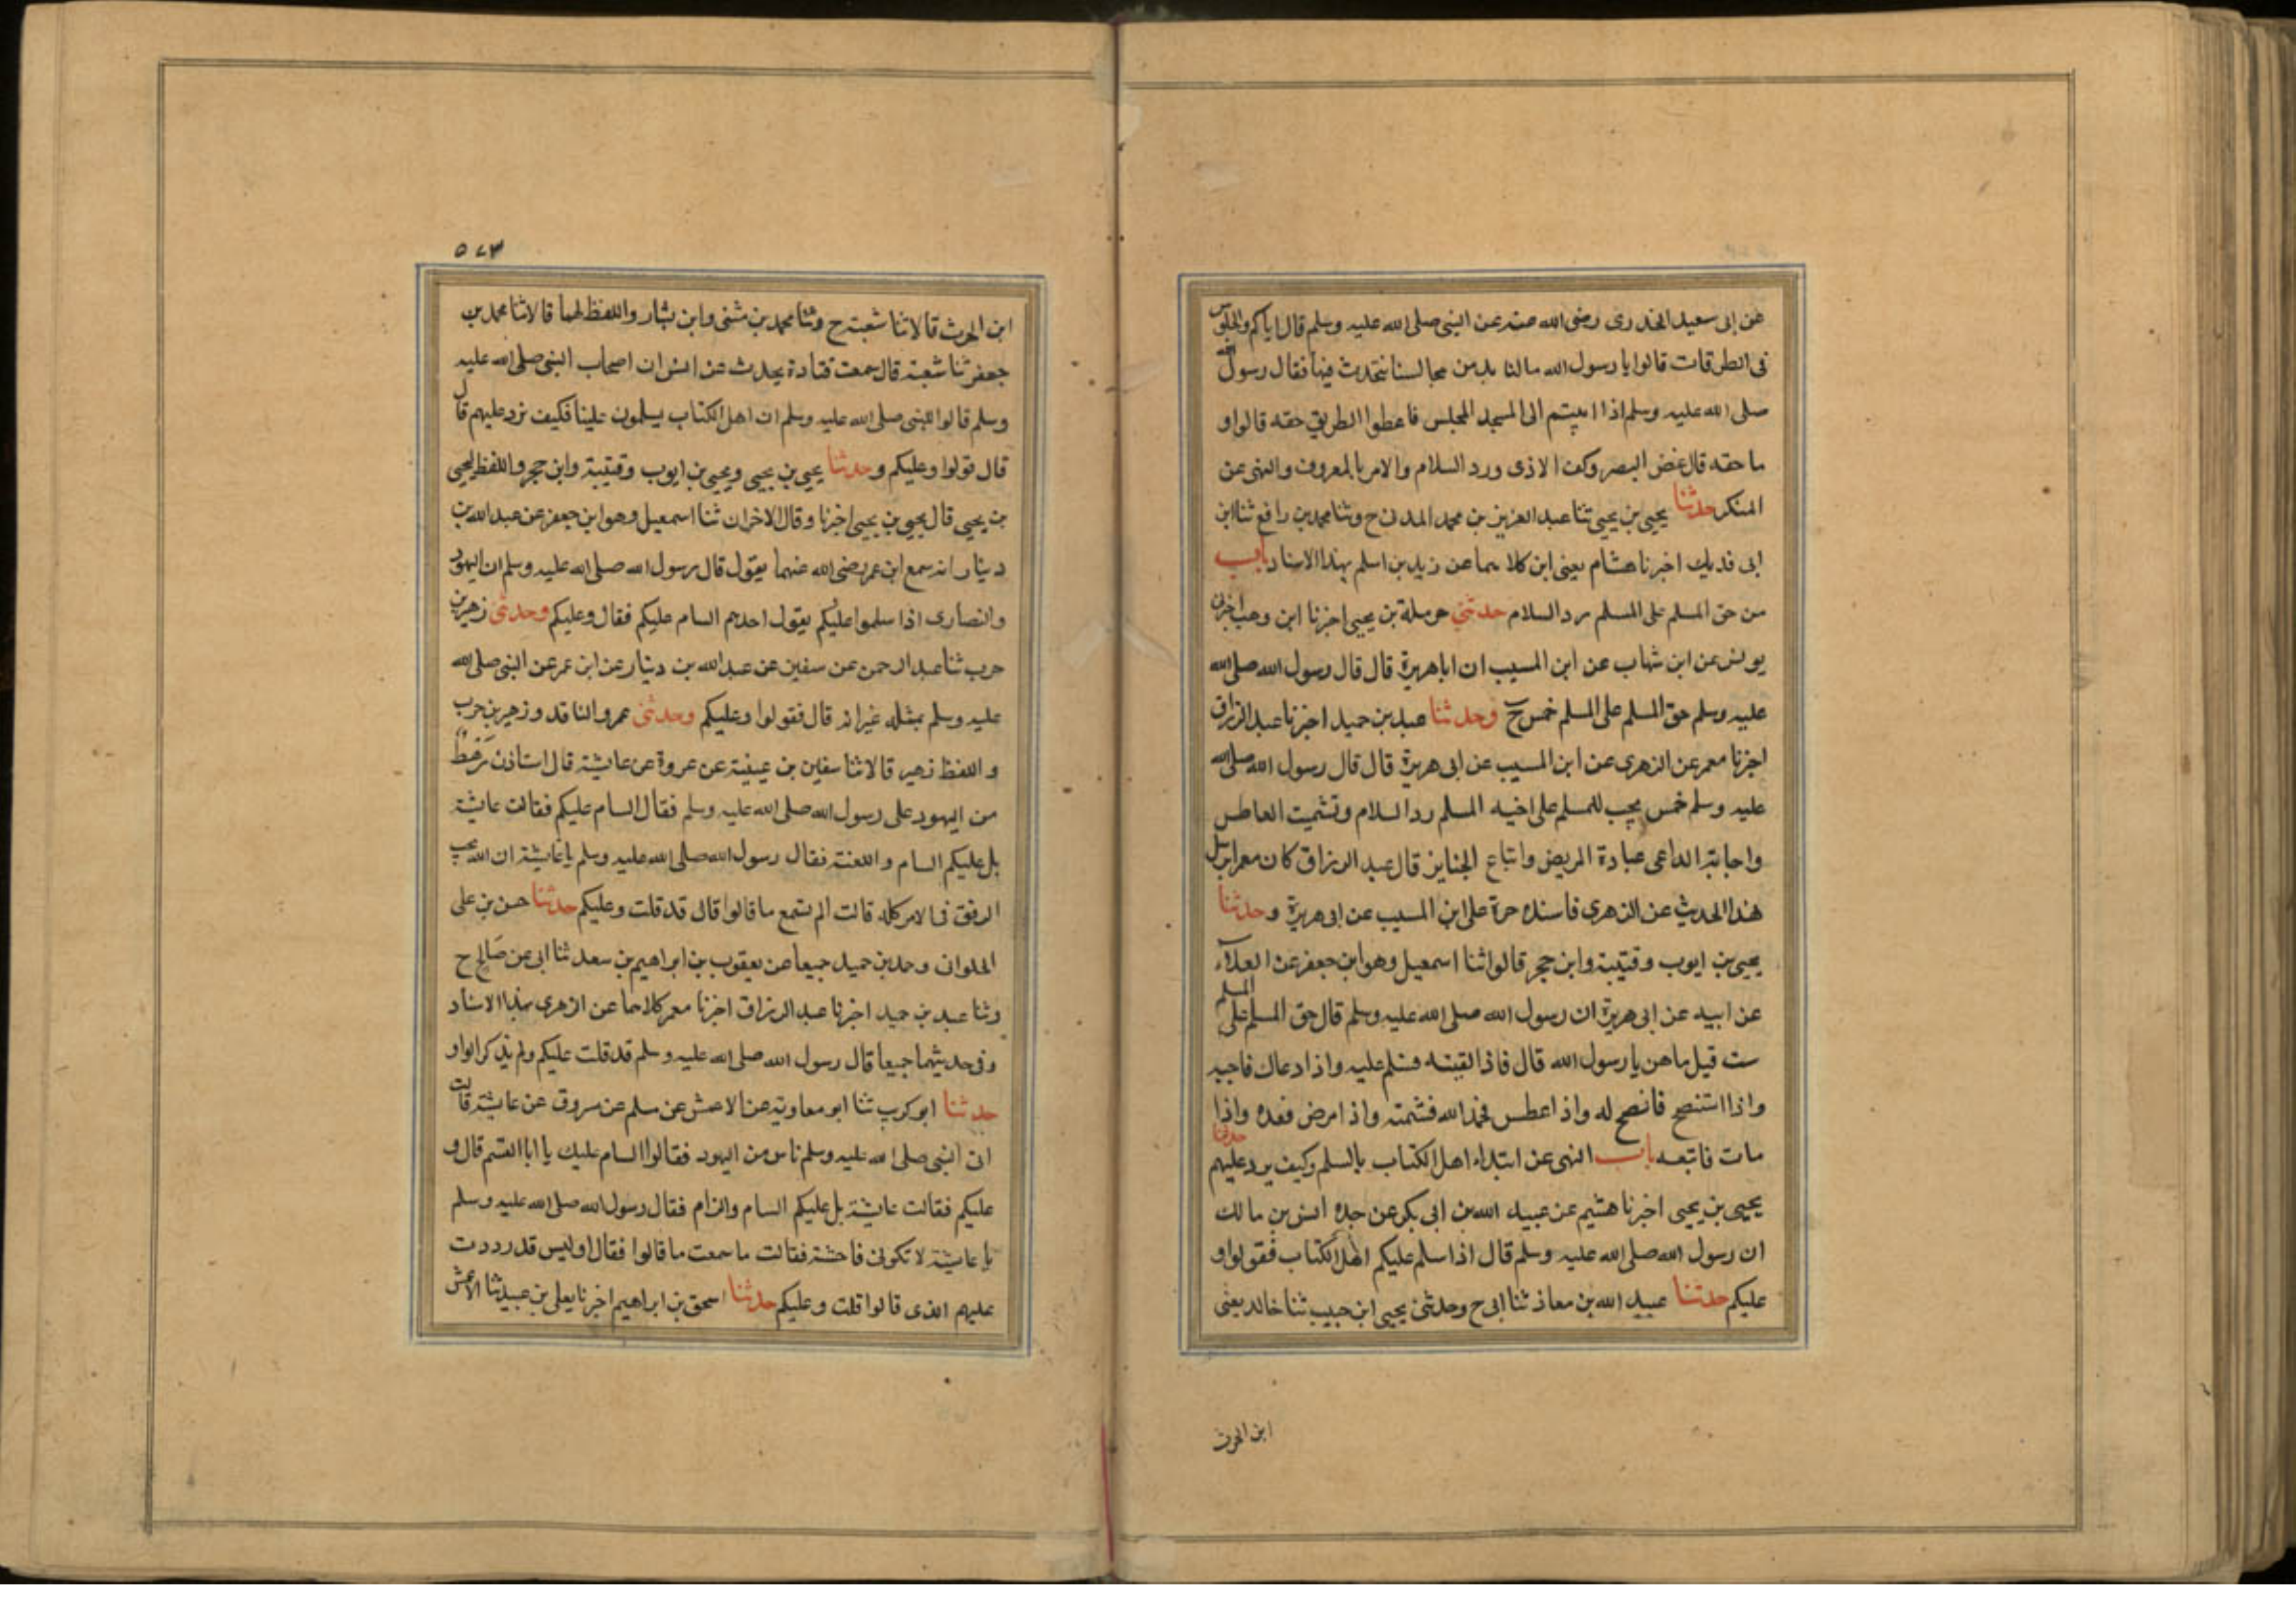 عن ابى سعيد الخدرى رضى الله عنه عن النبى صلى الله عليه وسلم قال اياكم والجلوس
فى الطرقات قالوا يا رسول الله مالنا بد من مجالسنا نتحدث فيها فقال رسول الله
صلى الله عليه وسلم اذا ابيتم الى المسجد المجلس فاعطوا الطريق حقه قالوا و
ما حقه قال غض البصر وكف الاذى ورد السلام والامر بالمعروف والنهى عن
المنكر حدثنا يحيى بن يحيى ثنا عبد العزيز بن محمد المدنى ح وثنا محمد بن رافع ثنا ابن
ابى فديك اخبرنا هشام يعنى ابن كلاهما عن زيد بن اسلم بهذا الاسناد باب
من حق المسلم على المسلم رد السلام حدثنى حرملة بن يحيى اخبرنا ابن وهب اخبرنى
يونس عن ابن شهاب عن ابن المسيب ان ابا هريرة قال قال رسول الله صلى الله
عليه وسلم حق المسلم على المسلم خمس ح وحدثنا عبد بن حميد اخبرنا عبد الرزاق
اخبرنا معمر عن الزهرى عن ابن المسيب عن ابى هريرة قال قال رسول الله صلى الله
عليه وسلم خمس يجب للمسلم على اخيه المسلم رد السلام وتشميت العاطس
واجابة الداعى عيادة المريض واتباع الجنايز قال عبد الرزاق كان معمر يرسل
هذا الحديث عن الزهرى فاسنده مرة على ابن المسيب عن ابى هريرة وحدثنا
يحيى بن ايوب وقتيبة وابن حجر قالوا ثنا اسمعيل وهو ابن جعفر عن العلآء
عن ابيه عن ابى هريرة ان رسول الله صلى الله عليه وسلم قال حق المسلم على المسلم
ست قيل ما هن يا رسول الله قال فاذا لقيته فسلم عليه واذا دعاك فاجبه
واذا استنصح فانصح له واذ اعطس فحمد الله فشمته واذا مرض فعده واذا
مات فاتبعه باب النهى عن ابتداء اهل الكتاب بالسلم وكيف يرد عليهم حدثنا
يحيى بن يحيى اخبرنا هشيم عن عبيد الله بن ابى بكر عن جده انس بن مالك
ان رسول الله صلى الله عليه وسلم قال اذا سلم عليكم اهل الكتاب فقولوا و
عليكم حدثنا عبيد الله بن معاذ ثنا ابى ح وحدثنى يحيى ابن حبيب ثنا خالد يعنى
ابن الحرث
٥٧٣
ابن الحرث قالا ثنا شعبة ح وثنا محمد بن مثنى وابن بشار واللفظ لهما قالا ثنا محمد بن
جعفر ثنا شعبة قال سمعت قتادة يحدث عن انس ان اصحاب النبى صلى الله عليه
وسلم قالوا للنبى صلى الله عليه وسلم ان اهل الكتاب يسلمون علينا فكيف نرد عليهم قال
قال قولوا وعليكم وحدثنا يحيى بن يحيى ويحيى بن ايوب وقتيبة وابن حجر واللفظ ليحيى
بن يحيى قال يحيى بن يحيى اخبرنا وقال الاخران ثنا اسمعيل وهو ابن جعفر عن عبد الله بن
دينار انه سمع ابن عمر رضى الله عنهما يقول قال رسول الله صلى الله عليه وسلم ان اليهود
والنصارى اذا سلموا عليكم يقول احدهم السام عليكم فقال وعليكم وحدثنى زهير بن
حرب ثنا عبد الرحمن عن سفين عن عبد الله بن دينار عن ابن عمر عن النبى صلى الله
عليه وسلم بمثله غير انه قال فقولوا وعليكم وحدثنى عمرو الناقد وزهير بن حرب
واللفظ زهير قالا ثنا سفين بن عيينة عن عروة عن عايشة قال استاذن رهط
من اليهود على رسول الله صلى الله عليه وسلم فقال السام عليكم فقالت عايشة
بل عليكم السام واللعنة فقال رسول الله صلى الله عليه وسلم يا عايشة ان الله يحب
الرفق فى الامر كله قالت الم تسمع ما قالوا قال قد قلت وعليكم حدثنا حسن بن على
الحلوانى وحد بن حميد جميعا عن يعقوب بن ابراهيم بن سعد ثنا ابى عن صالح ح
وثنا عبد بن حميد اخبرنا عبد الرزاق اخبرنا معمر كلاهما عن الزهرى بهذا الاسناد
وفى حديثهما جميعا قال رسول الله صلى الله عليه وسلم قد قلت عليكم ولم يذكر الواو
حدثنا ابو كريب ثنا ابو معاوية عن الاعمش عن مسلم عن مسروق عن عايشة قالت
اتى النبى صلى الله عليه وسلم ناس من اليهود فقالوا السام عليك يا ابا القسم قال و
عليكم فقالت عايشة بل عليكم السام والذام فقال رسول الله صلى الله عليه وسلم
يا عايشة لا تكونى فاحشة فقالت ما سمعت ما قالوا فقال اوليس قد رددت
عليهم الذى قالوا قلت وعليكم حدثنا اسحق بن ابراهيم اخبرنا يعلى بن عبيد ثنا الاعمش